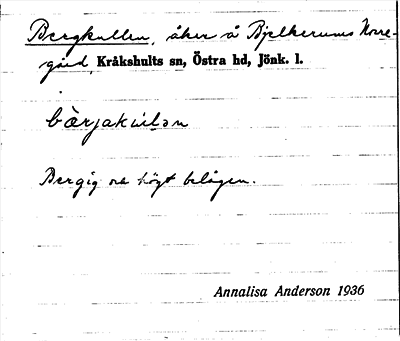 Bergkullen, åker å Bjelkerums Norre-
gård, Kråkshults sn, Östra hd, Jönk. l.
bærjakúlǝn
Bergig och högt belägen.
Annalisa Anderson 1936